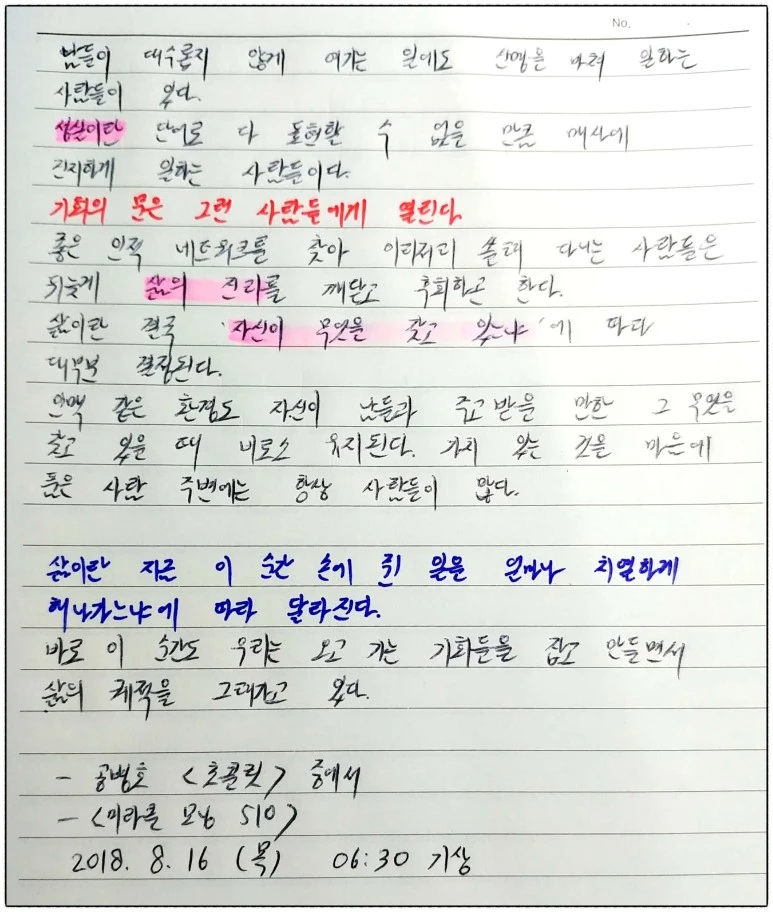 No.
남들이 대수롭지 않게 여기는 일에도 신명을 바쳐 일하는
사람들이 있다.
성실이란 단어로 다 표현할 수 없을 만큼 매사에
진지하게 일하는 사람들이다.
기회의 문은 그런 사람들에게 열린다.
좋은 인적 네트워크를 찾아 이리저리 쏠려 다니는 사람들은
뒤늦게 삶의 진리를 깨닫고 후회하곤 한다.
삶이란 결국 '자신이 무엇을 갖고 있느냐'에 따라
대부분 결정된다.
인맥 같은 환경도 자신이 남들과 주고받을 만한 그 무엇을
갖고 있을 때 비로소 유지된다. 가치 있는 것을 마음에
품은 사람 주변에는 항상 사람들이 많다.
삶이란 지금 이 순간 손에 쥔 일을 얼마나 치열하게
해나가느냐에 따라 달라진다.
바로 이 순간도 우리는 오고 가는 기회들을 잡고 만들면서
삶의 궤적을 그려가고 있다.
- 공병호 <초콜릿> 중에서
- <미라클 모닝 510>
2018. 8. 16 (목) 06:30 기상